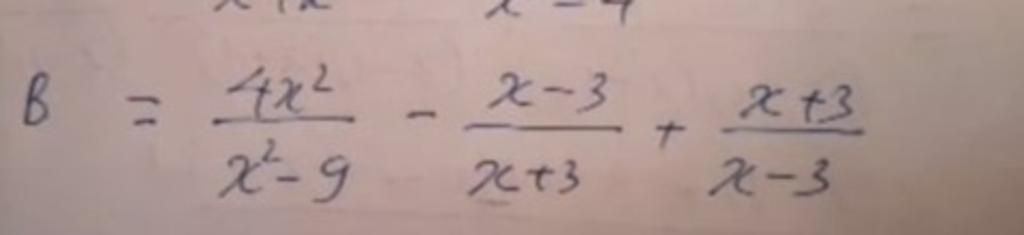 B = \frac{4x^2}{x^2-9} - \frac{x-3}{x+3} + \frac{x+3}{x-3}